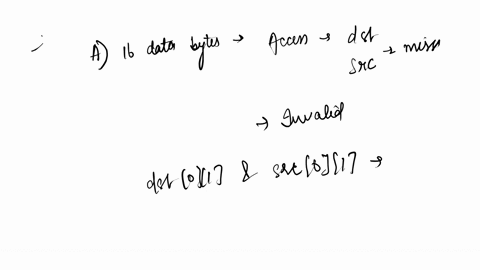 A) 16 data bytes → Access → dst
src → miss
→ Invalid
dst[0][1] & src[0][1] →